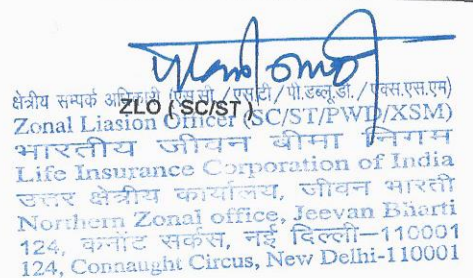 क्षेत्रीय सम्पर्क अधिकारी (एस.सी./एस.टी/पी.डब्लू.डी./एक्स.एस.एम)
ZLO ( SC/ST )
Zonal Liasion Officer (SC/ST/PWD/XSM)
भारतीय जीवन बीमा निगम
Life Insurance Corporation of India
उत्तर क्षेत्रीय कार्यालय, जीवन भारती
Northern Zonal office, Jeevan Bharti
124, कनॉट सर्कस, नई दिल्ली–110001
124, Connaught Circus, New Delhi-110001